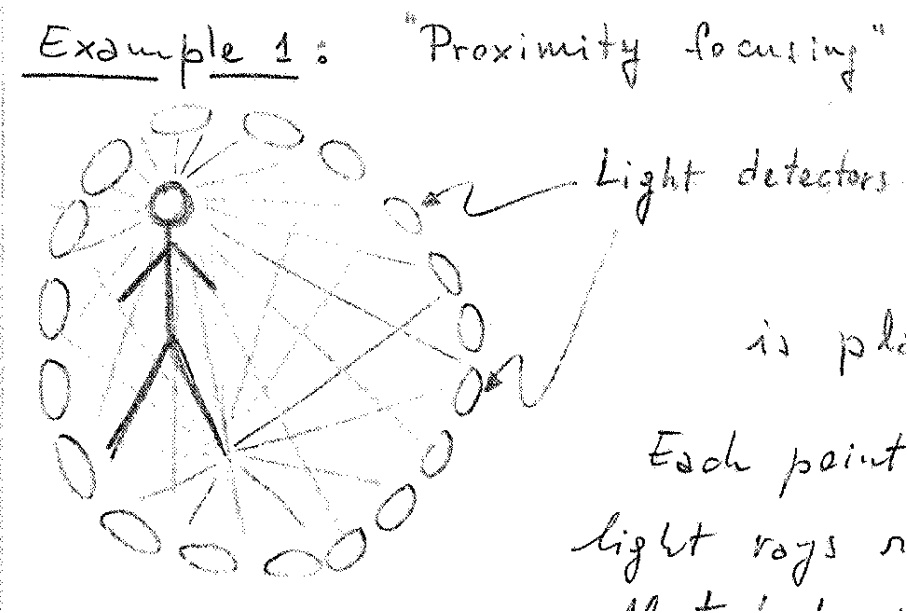 Example 1: "Proximity focusing"
Light detectors
is pla
Each point
light rays